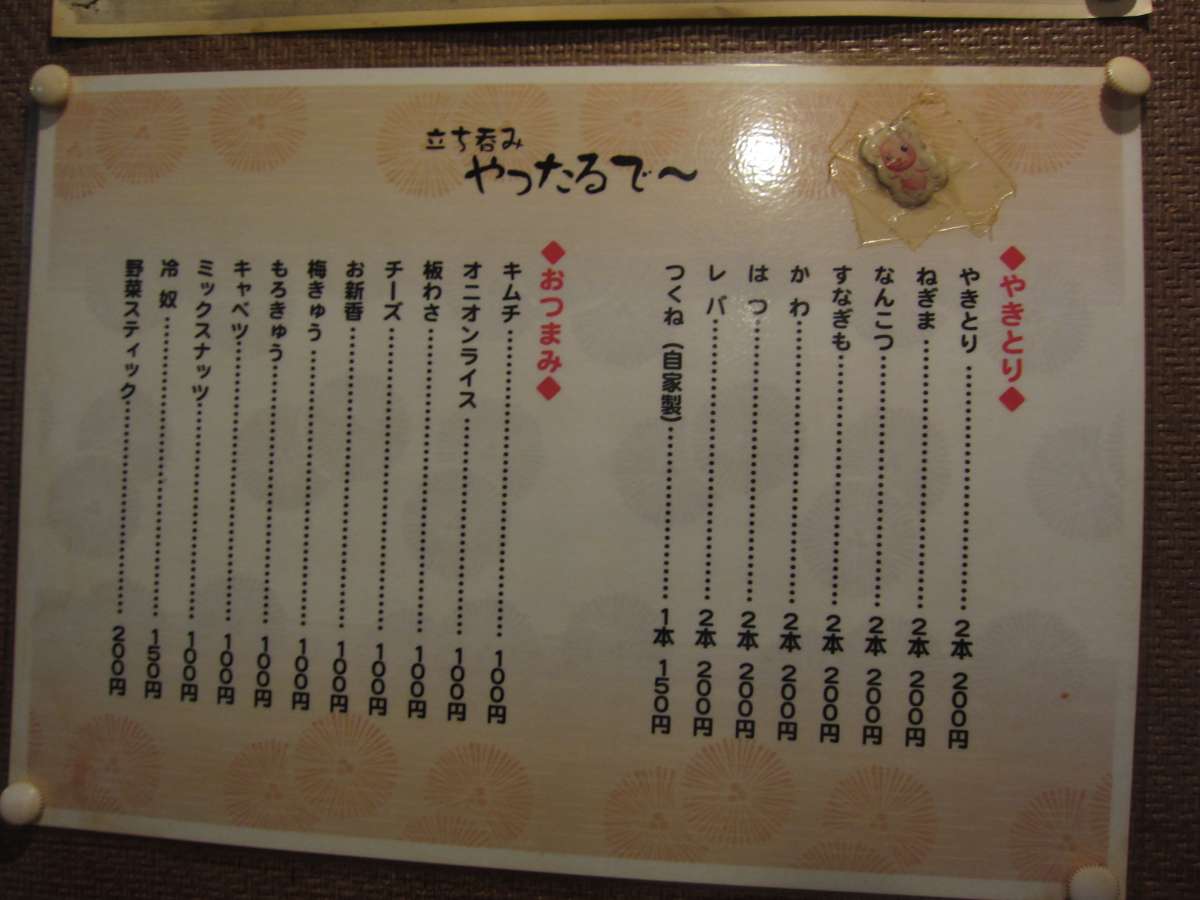 立ち呑み
やったるで～
◆やきとり◆
やきとり…………………2本 200円
ねぎま…………………2本 200円
なんこつ…………………2本 200円
すなぎも…………………2本 200円
かわ…………………2本 200円
はつ…………………2本 200円
レバ…………………2本 200円
つくね（自家製）…………………1本 150円
◆おつまみ◆
キムチ…………………100円
オニオンライス…………………100円
板わさ…………………100円
チーズ…………………100円
お新香…………………100円
梅きゅう…………………100円
もろきゅう…………………100円
キャベツ…………………100円
ミックスナッツ…………………100円
冷奴…………………150円
野菜スティック…………………200円